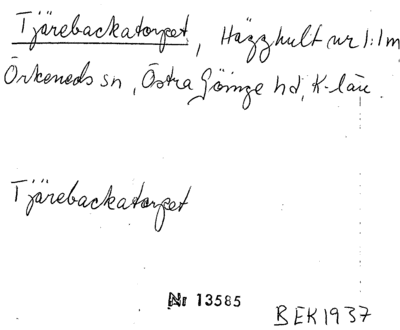 Tjärebackatorpet, Hägghult nr 1:1m
Örkeneds sn, Östra Göinge hd, K-län.
Tjärebackatorpet
Nr 13585
BEK1937